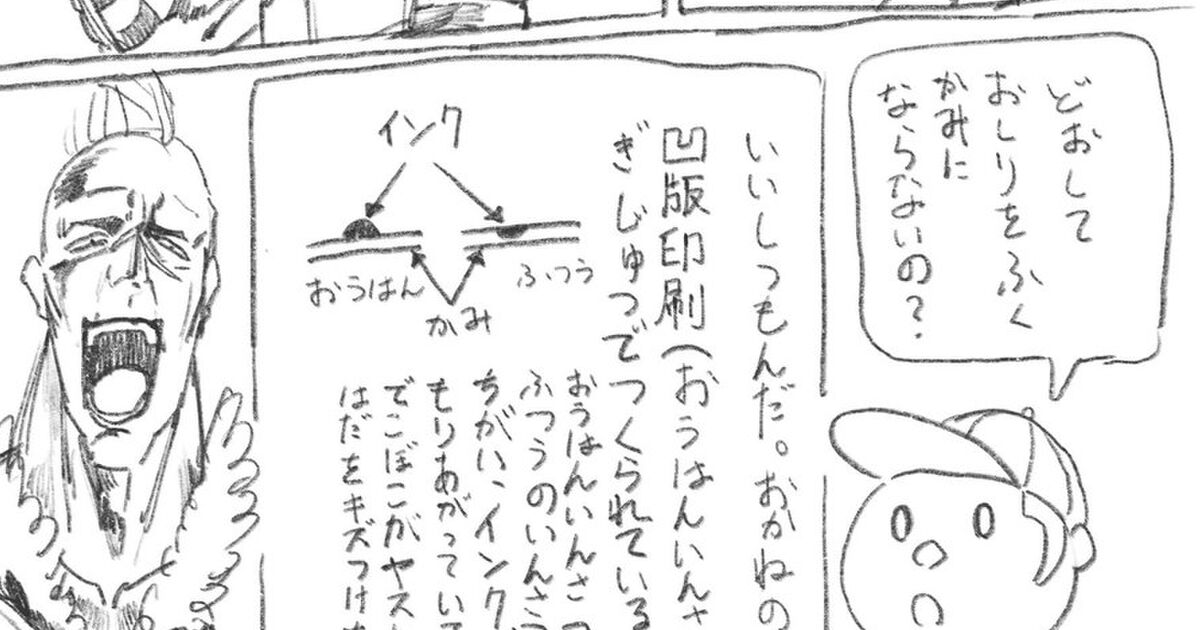 どおして
おしりをふく
かみに
ならないの?
いいしつもんだ。おかねの
凹版印刷(おうはんいんさ
ぎじゅつでつくられている
インク
おうはん
ふつう
かみ
おうはんいんさつ
ふつうのいんさつ
ちがい、インク
もりあがってい
でこぼこがヤス
はだをキズつけ